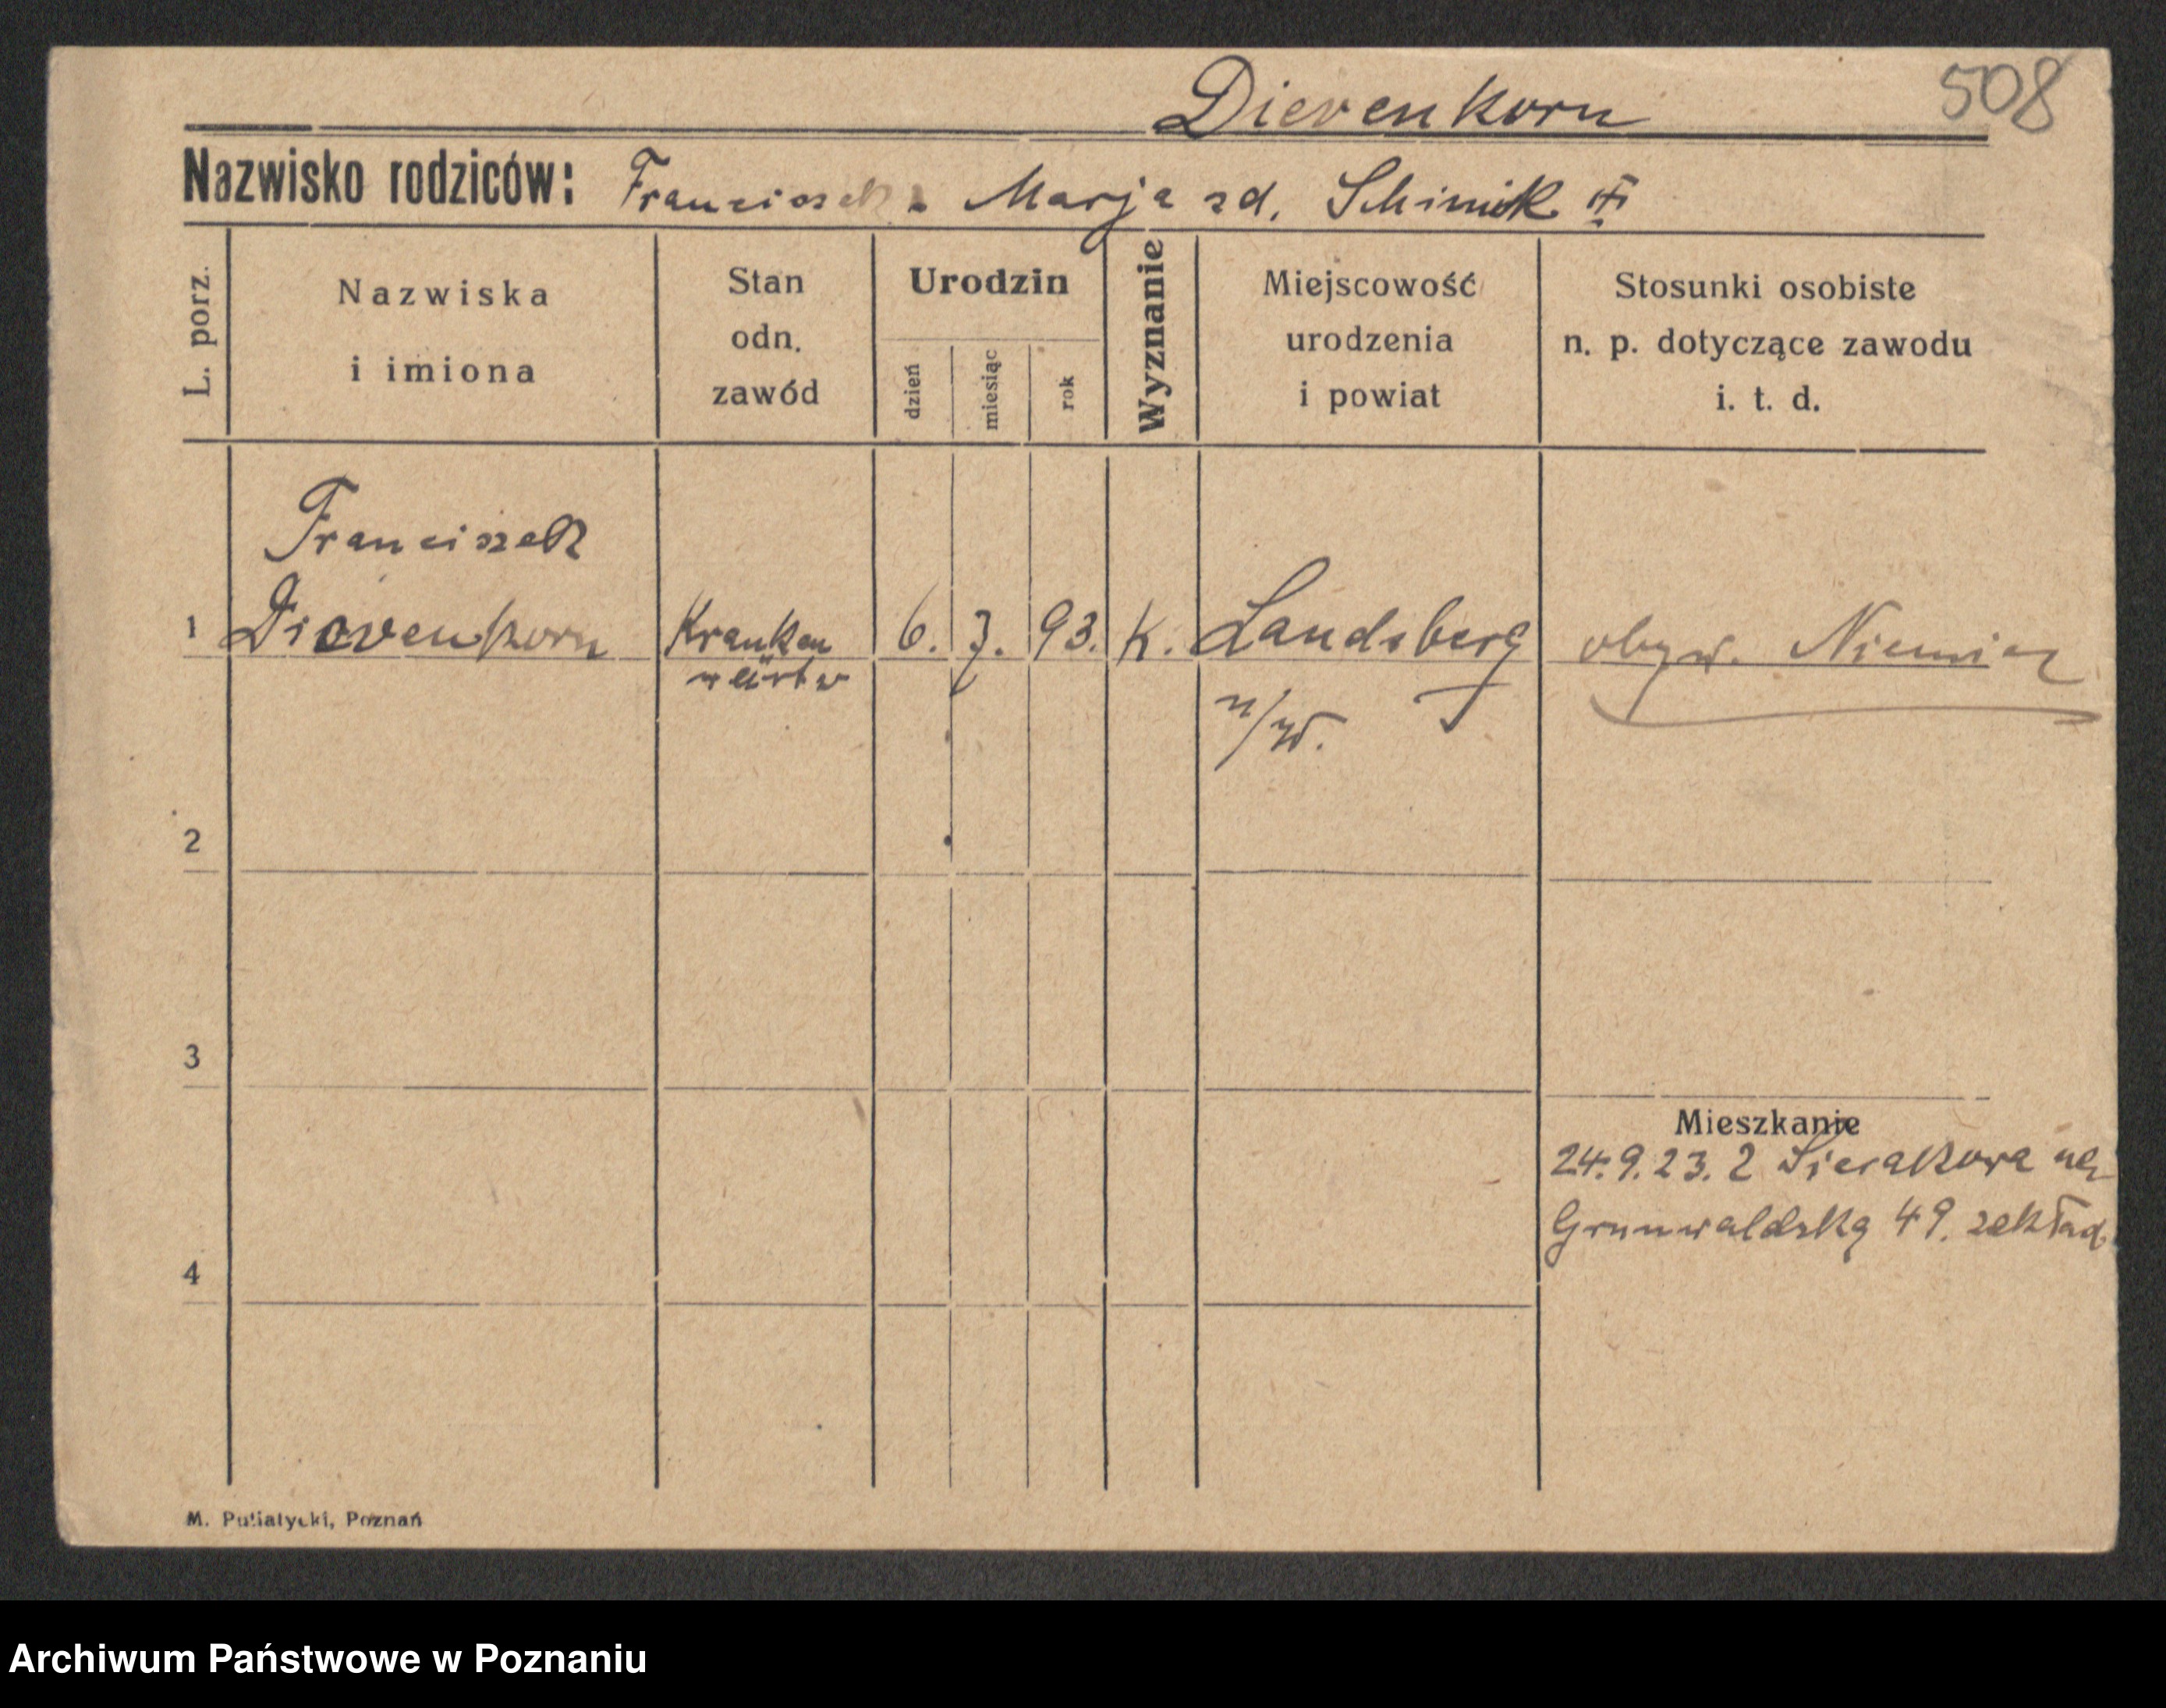 Dievenkorn
508
Nazwisko rodziców: Franciszek Marja zd. Schimik
L. porz.
Nazwiska
i imiona
Stan
odn.
zawód
Urodzin
dzień
miesiąc
rok
Wyznanie
Miejscowość
urodzenia
i powiat
Stosunki osobiste
n. p. dotyczące zawodu
i. t. d.
Franciszek
1 Dievenkorn Kranken 6. 7. 93. K. Landsberg obyw. Niemiec
wärter
n/W.
2
3
Mieszkanie
24.9.23. z Sierakowa na
Grunwaldską 49. zakład
4
M. Putiatycki, Poznań
Archiwum Państwowe w Poznaniu